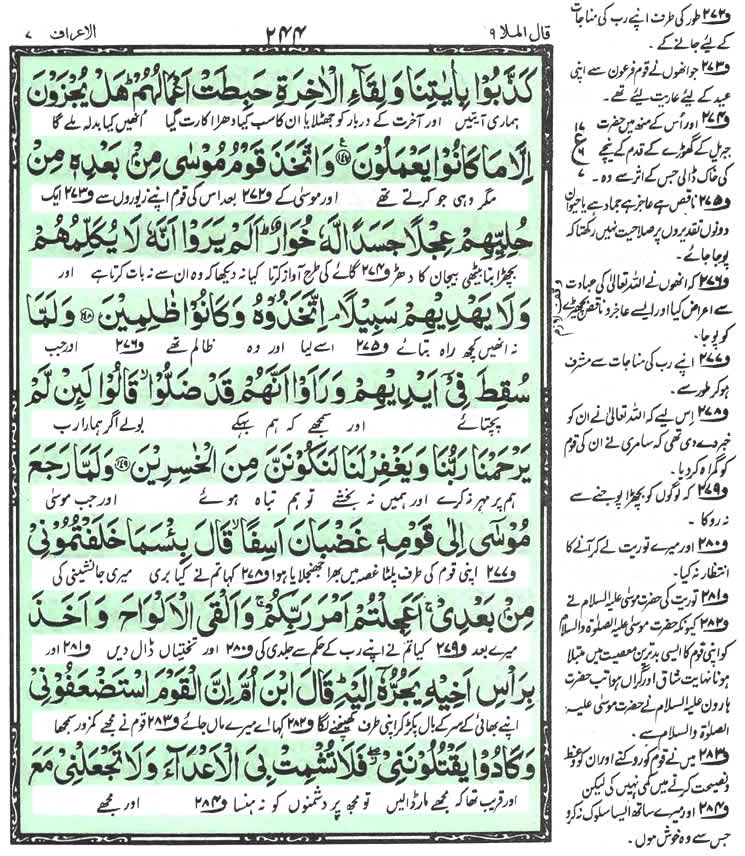 قال الملا ٩
٢٤٤
الاعراف ٧
كَذَّبُوْا بِاٰيٰتِنَا وَلِقَآءِ الْاٰخِرَةِ حَبِطَتْ اَعْمَالُهُمْ هَلْ يُجْزَوْنَ
ہماری آیتیں اور آخرت کے دربار کو جھٹلایا ان کا سب کیا دھرا اکارت گیا انھیں کیا بدلہ ملے گا
اِلَّا مَا كَانُوْا يَعْمَلُوْنَ ۧ وَاتَّخَذَ قَوْمُ مُوْسٰى مِنْۢ بَعْدِهٖ مِنْ
مگر وہی جو کرتے تھے اور موسیٰ کے ف۲۷۲ بعد اس کی قوم اپنے زیوروں سے ف۲۷۳ ایک
حُلِيِّهِمْ عِجْلًا جَسَدًا لَّهٗ خُوَارٌ ؕ اَلَمْ يَرَوْا اَنَّهٗ لَا يُكَلِّمُهُمْ
بچھڑا بنا بیٹھی بیجان کا دھڑ ف۲۷۴ گائے کی طرح آواز کرتا کیا نہ دیکھا کہ وہ ان سے نہ بات کرتا ہے اور
وَلَا يَهْدِيْهِمْ سَبِيْلًا ۘ اِتَّخَذُوْهُ وَكَانُوْا ظٰلِمِيْنَ ﴿۱۴۸﴾ وَلَمَّا
نہ انھیں کچھ راہ بتائے ف۲۷۵ اسے لیا اور وہ ظالم تھے ف۲۷۶ اور جب
سُقِطَ فِيْۤ اَيْدِيْهِمْ وَرَاَوْا اَنَّهُمْ قَدْ ضَلُّوْا ۙ قَالُوْا لَىِٕنْ لَّمْ
پچتائے اور سمجھے کہ ہم بہکے بولے اگر ہمارا رب
يَرْحَمْنَا رَبُّنَا وَيَغْفِرْ لَنَا لَنَكُوْنَنَّ مِنَ الْخٰسِرِيْنَ ﴿۱۴۹﴾ وَلَمَّا رَجَعَ
ہم پر مہر نہ کرے اور ہمیں نہ بخشے تو ہم تباہ ہوئے اور جب موسیٰ
مُوْسٰۤى اِلٰى قَوْمِهٖ غَضْبَانَ اَسِفًا ۙ قَالَ بِئْسَمَا خَلَفْتُمُوْنِيْ
ف۲۷۷ اپنی قوم کی طرف پلٹا غصہ میں بھرا جھنجلایا ہوا ف۲۷۸ کہا تم نے کیا بری میری جانشینی کی
مِنْۢ بَعْدِيْ ۚ اَعَجِلْتُمْ اَمْرَ رَبِّكُمْ ۚ وَاَلْقَى الْاَلْوَاحَ وَاَخَذَ
میرے بعد ف۲۷۹ کیا تم نے اپنے رب کے حکم سے جلدی کی ف۲۸۰ اور تختیاں ڈال دیں ف۲۸۱ اور
بِرَاْسِ اَخِيْهِ يَجُرُّهٗۤ اِلَيْهِ ؕ قَالَ ابْنَ اُمَّ اِنَّ الْقَوْمَ اسْتَضْعَفُوْنِيْ
اپنے بھائی کے سر کے بال پکڑ کر اپنی طرف کھینچنے لگا ف۲۸۲ کہا اے میرے ماں جائے ف۲۸۳ قوم نے مجھے کمزور سمجھا
وَكَادُوْا يَقْتُلُوْنَنِيْ ۖ فَلَا تُشْمِتْ بِيَ الْاَعْدَآءَ وَلَا تَجْعَلْنِيْ مَعَ
اور قریب تھا کہ مجھے مار ڈالیں تو مجھ پر دشمنوں کو نہ ہنسا ف۲۸۴ اور مجھے
ف۲۷۲ طور کی طرف اپنے رب کی مناجات
کے لیے جانے کے۔
ف۲۷۳ جو انھوں نے قوم فرعون سے اپنی
عید کے لیے عاریت لیے تھے۔
ف۲۷۴ اور اُس کے منھ میں حضرت
جبریل کے گھوڑے کے قدم کے نیچے
کی خاک ڈالی جس کے اثر سے وہ۔
١٧
ع
٦
٧
ف۲۷۵ ناقص ہے عاجز ہے جماد ہے یا حیوان
دونوں تقدیروں پر صلاحیت نہیں رکھتا کہ
پوجا جائے۔
ف۲۷۶ کہ انھوں نے اللہ تعالیٰ کی عبادت
سے اعراض کیا اور ایسے عاجز و ناقص بچھڑے
کو پوجا۔
وقف لازم
ف۲۷۷ اپنے رب کی مناجات سے مشرف
ہو کر طور سے۔
ف۲۷۸ اِس لیے کہ اللہ تعالیٰ نے ان کو
خبر دے دی تھی کہ سامری نے ان کی قوم
کو گمراہ کر دیا۔
ف۲۷۹ کہ لوگوں کو بچھڑا پوجنے سے
نہ روکا۔
ف۲۸۰ اور میرے توریت لے کر آنے کا
انتظار نہ کیا۔
ف۲۸۱ توریت کی حضرت موسیٰ علیہ السلام نے
ف۲۸۲ کیونکہ حضرت موسیٰ علیہ الصلوٰۃ والسلام
کو اپنی قوم کا ایسی بدترین معصیت میں مبتلا
ہونا نہایت شاق اور گراں ہوا تب حضرت
ہارون علیہ السلام نے حضرت موسیٰ علیہ
الصلوٰۃ والسلام سے۔
ف۲۸۳ میں نے قوم کو روکنے اور ان کو وعظ
و نصیحت کرنے میں کمی نہیں کی لیکن
ف۲۸۴ اور میرے ساتھ ایسا سلوک نہ کرو
جس سے وہ خوش ہوں۔